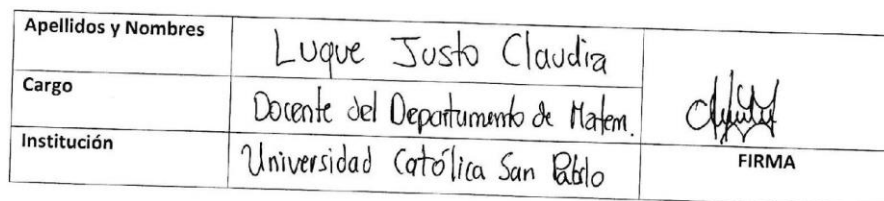 Apellidos y Nombres Luque Justo Claudia
Cargo Docente del Departamento de Matem.
Institución Universidad Católica San Pablo FIRMA